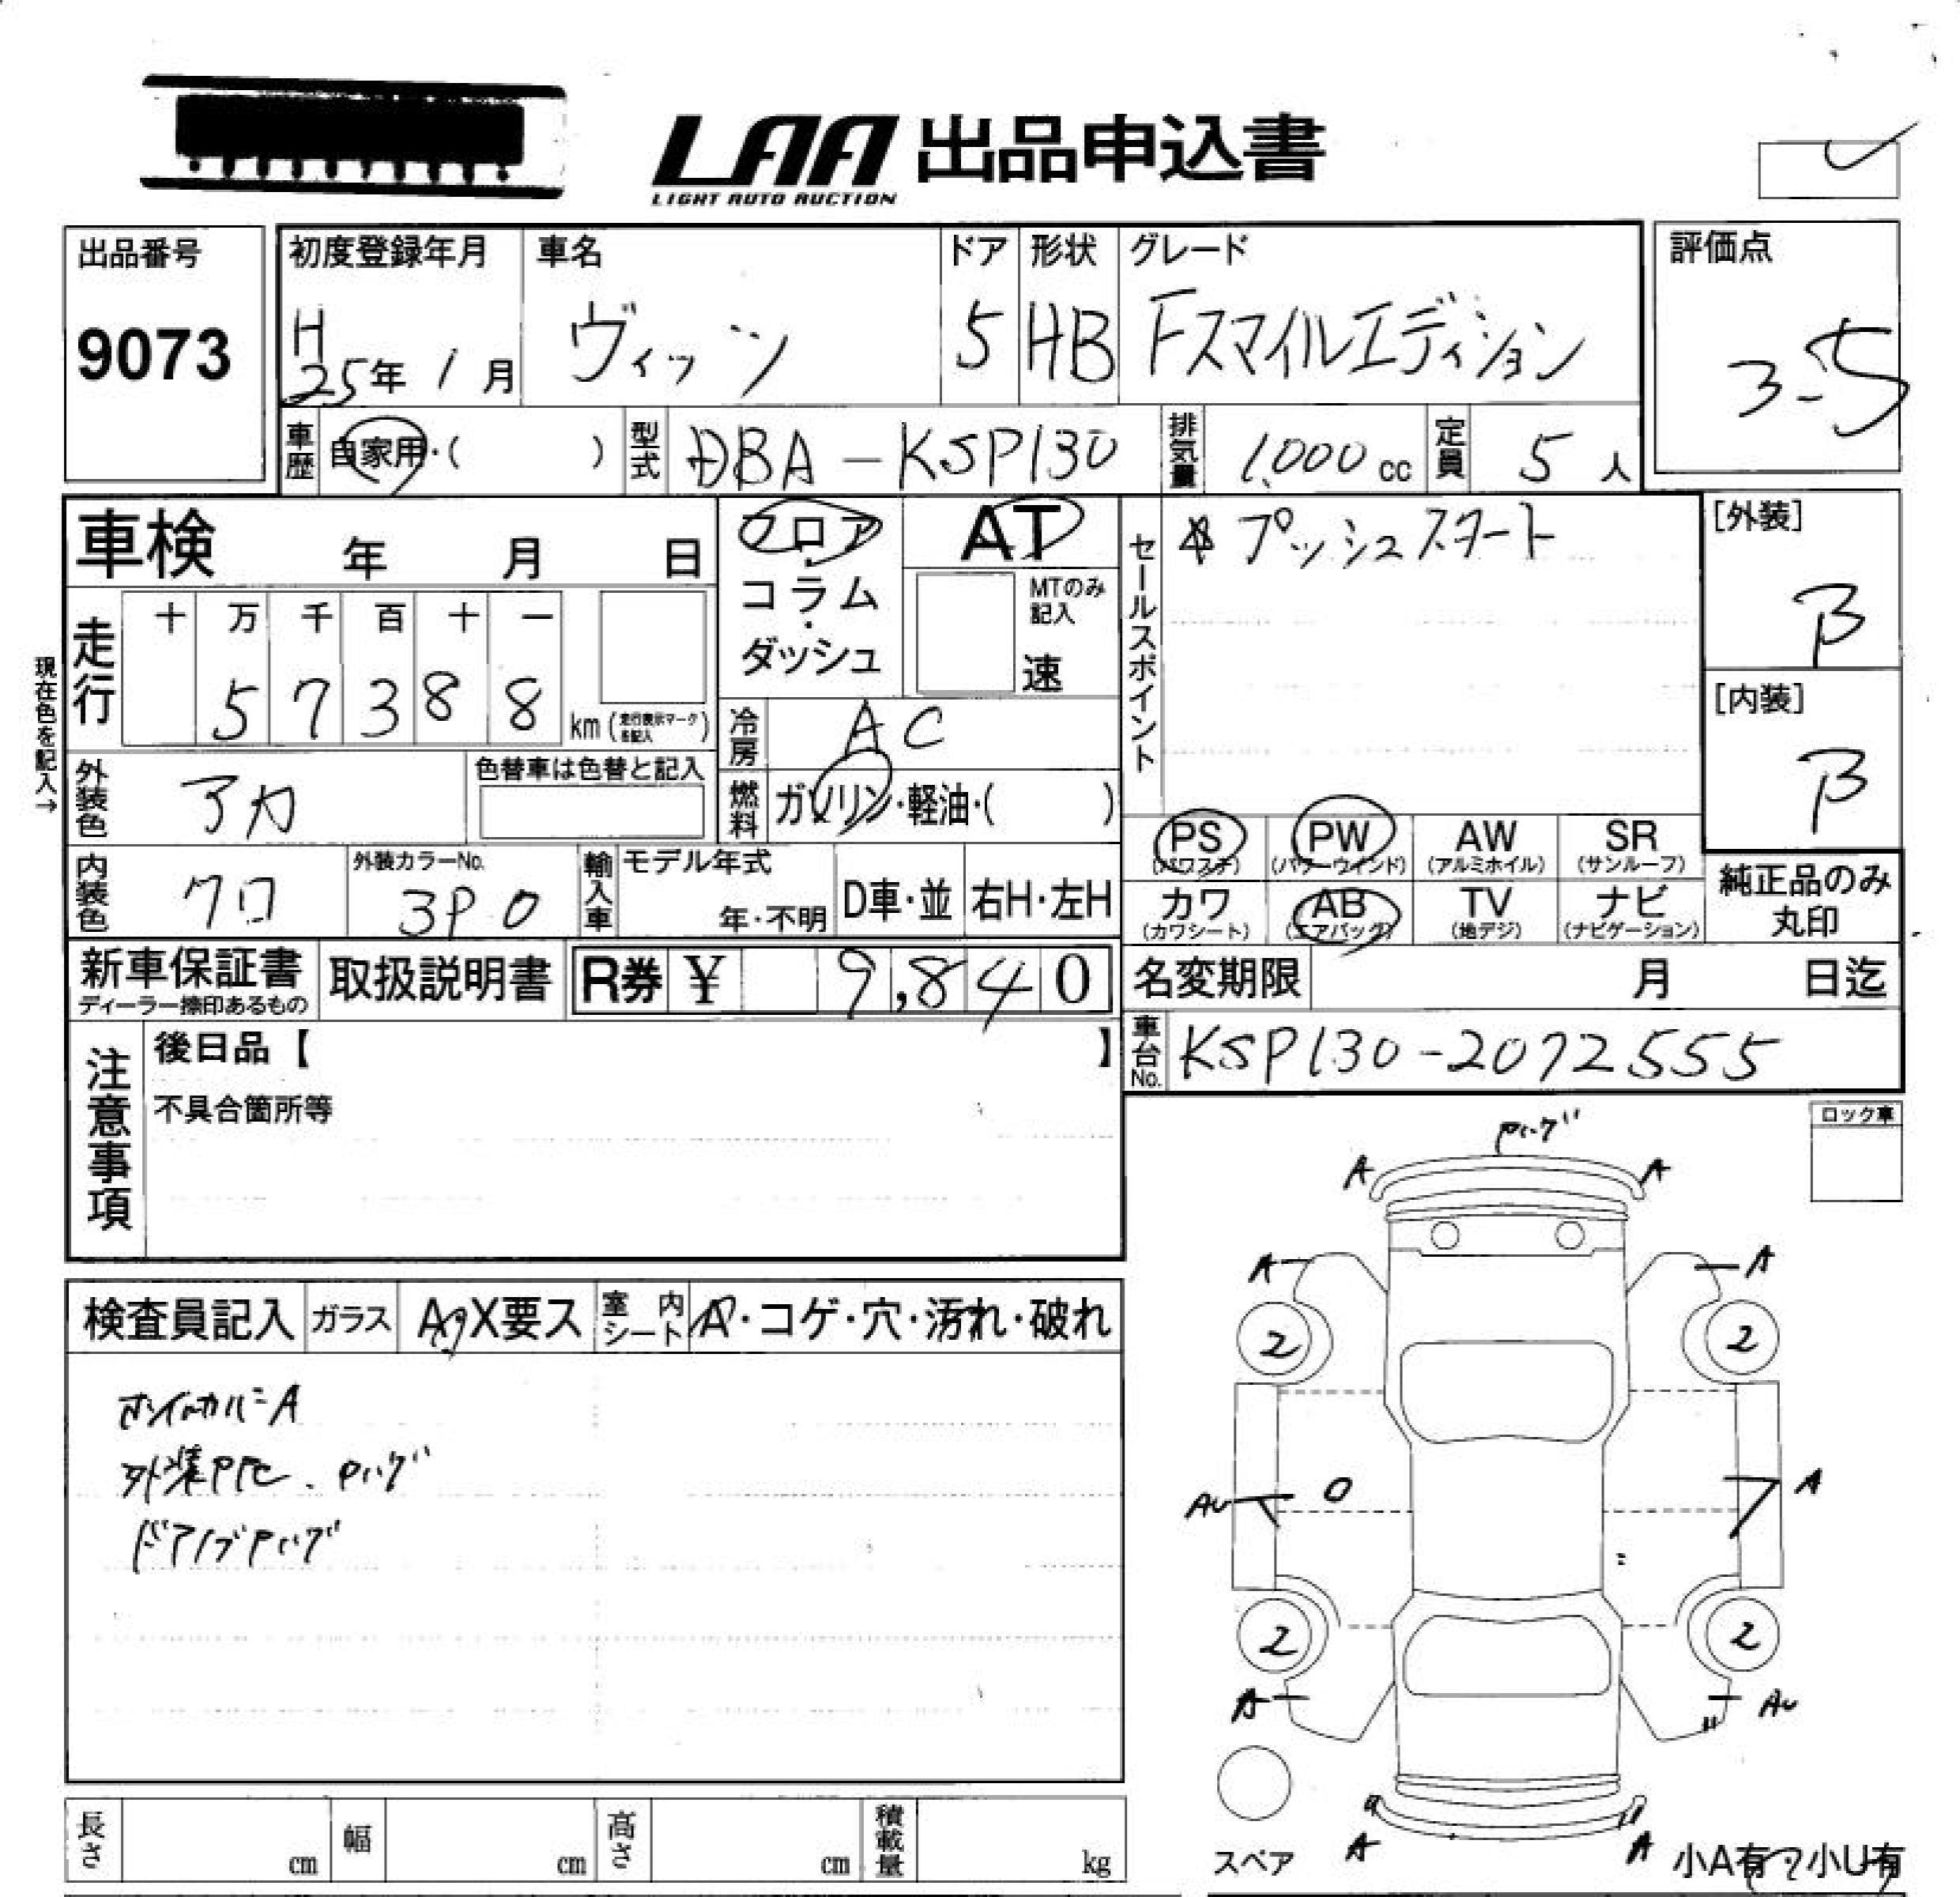 LAA 出品申込書
LIGHT AUTO AUCTION
出品番号
9073
初度登録年月
H25年 1月
車名
ヴィッツ
ドア
5
形状
HB
グレード
Fスマイルエディション
評価点
3-5
車歴
自家用・( )
型式
DBA-KSP130
排気量
1,000 cc
定員
5人
車検 年 月 日
フロア・コラム・ダッシュ
AT
MTのみ記入
速
セールスポイント
プッシュスタート
[外装]
B
[内装]
B
現在色を記入→
走行
十 万 千 百 十 一
5 7 3 8 8
km (走行表示マークを記入)
冷房
AC
外装色
アカ
色替車は色替と記入
燃料
ガソリン・軽油・( )
PS (パワステ)
PW (パワーウインド)
AW (アルミホイル)
SR (サンルーフ)
内装色
クロ
外装カラーNo.
3P0
輸入車
モデル年式
年・不明
D車・並
右H・左H
カワ (カワシート)
AB (エアバッグ)
TV (地デジ)
ナビ (ナビゲーション)
純正品のみ丸印
新車保証書
ディーラー捺印あるもの
取扱説明書
R券 ¥ 9,840
名変期限 月 日迄
車台No.
KSP130-2072555
注意事項
後日品【 】
不具合箇所等
ロック車
検査員記入
ガラス
A・X要ス
室内シート
A・コゲ・穴・汚れ・破れ
外装
A A
A A
2 2
AU A
2 2
A AU
A A
スペア
小A有・小U有
長さ cm
幅 cm
高さ cm
積載量 kg